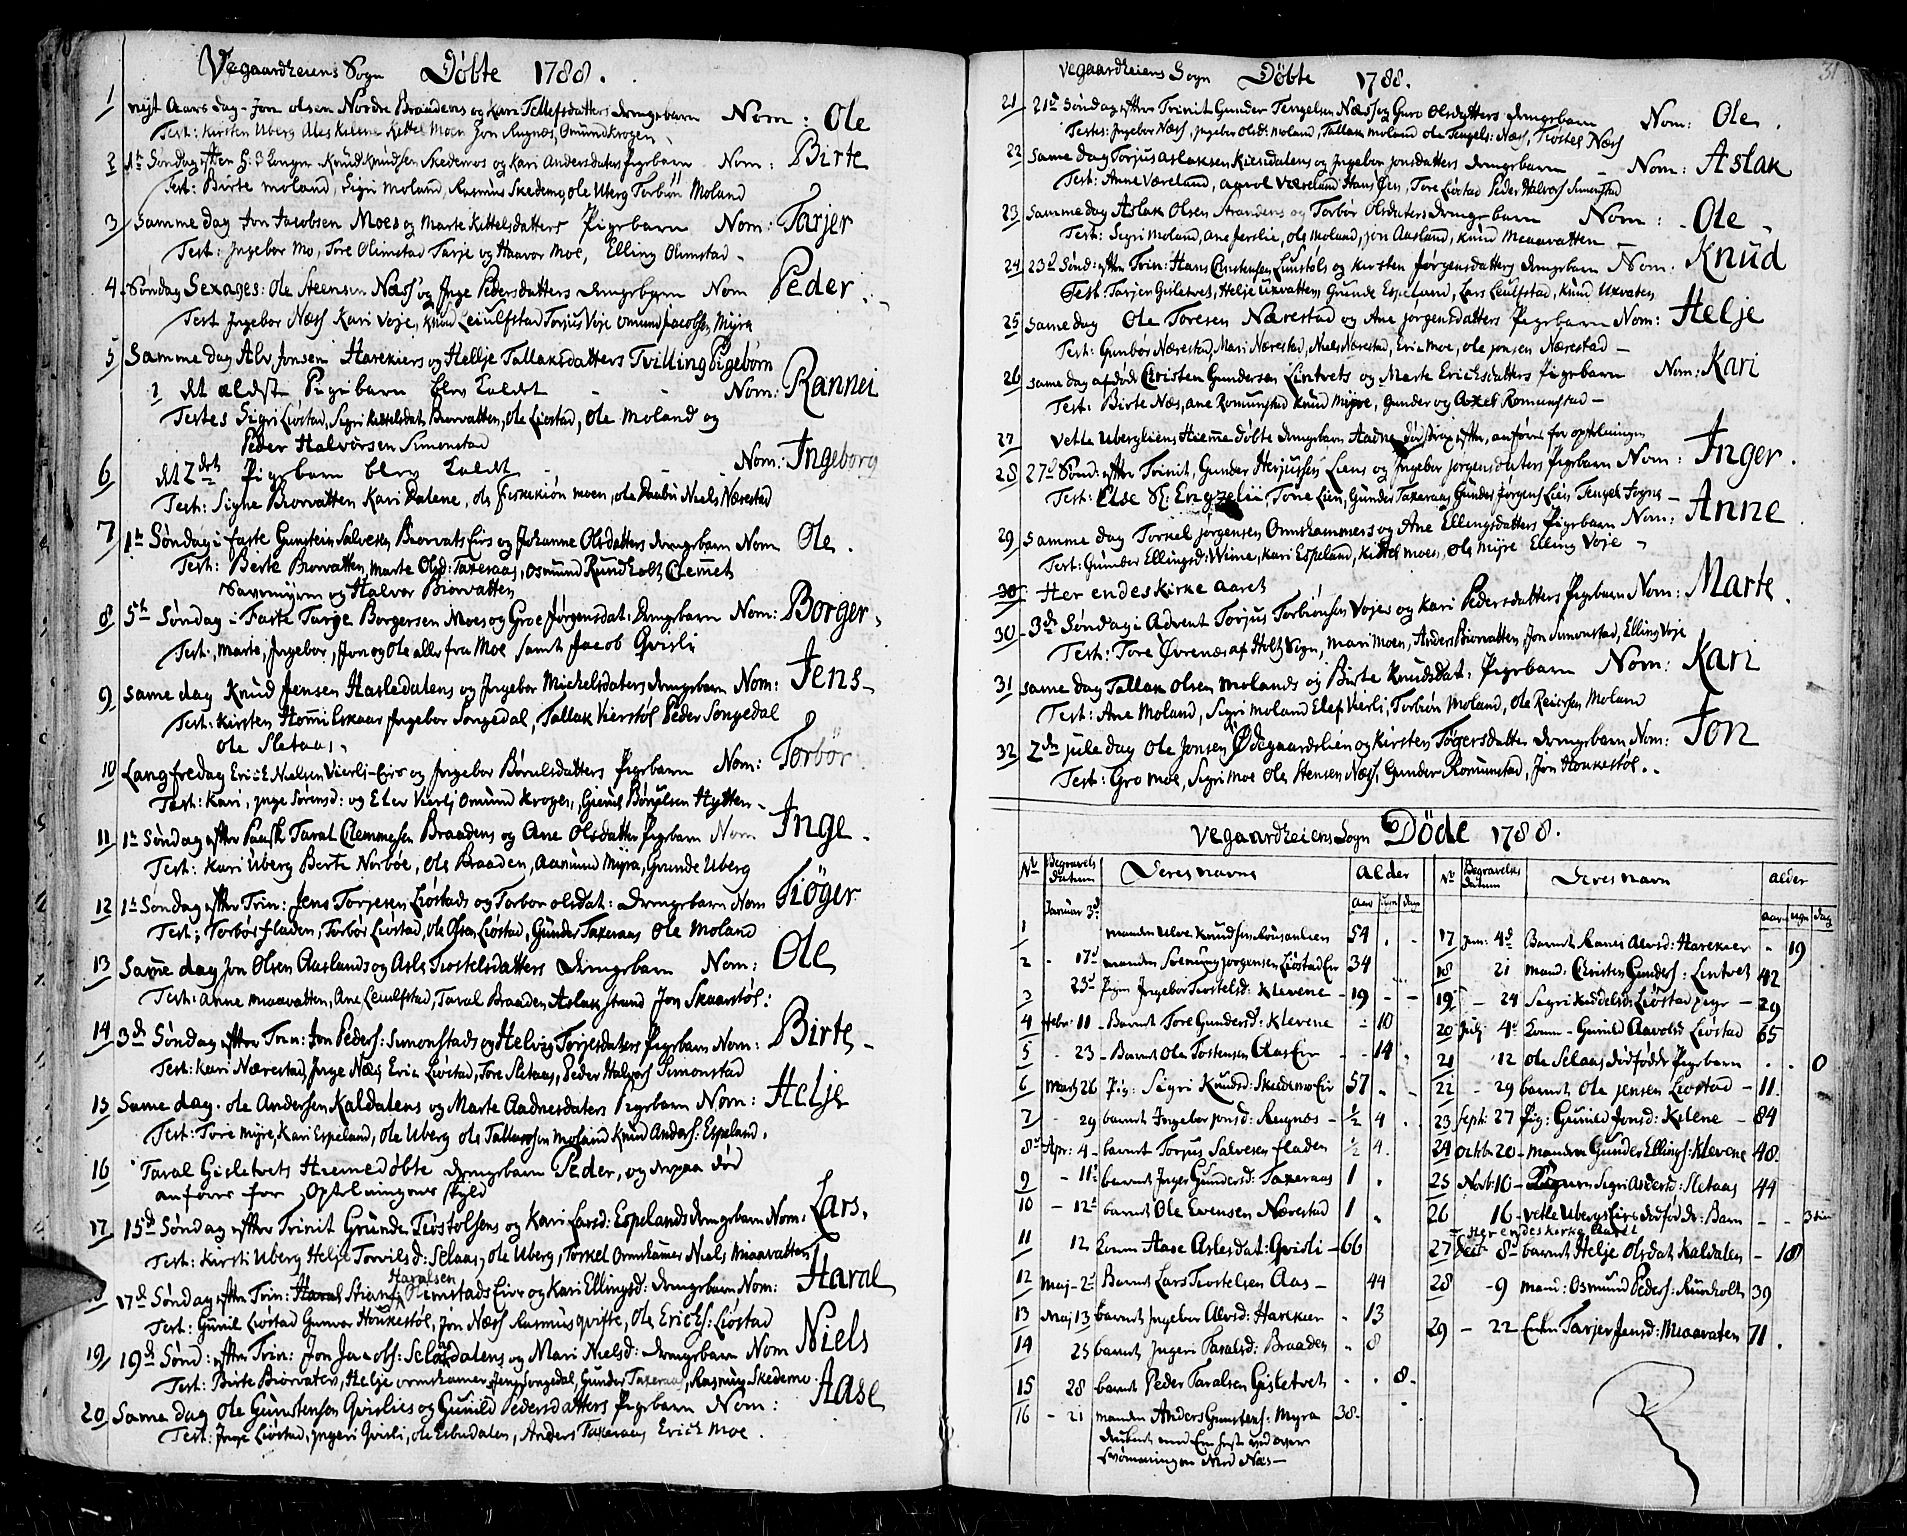 Vegaardheiens Sogn Döbte 1788.
1 nÿt Aars dag - Jon olsen Nordre Braadens og Kari Tellefsdatters drengebarn Nom: Ole
Test: Kirsten Uberg Kittel Moen Jon Rugnæs, Omund Krogen
2 Søndag efter Knud Knudsen Skedemos og Kari Andersdaters Pigebarn Nom: Birte
Test: Birte Moland, Sigri Moland, Rasmus Skedemo ole Uberg Torbiön Moland
3 Samme dag Jon Jacobsen Moes og Marte Kittelsdatters Pigebarn Nom: Tarjer
Test: Ingebor Mo, Tore Olimstad Tarje og Haavor Moe, Elling Olimstad
4 Søndag Sexages: Ole Steensen Næss og Inge Pedersdatters drengebarn Nom Peder
Test Ingebor Næss Kari Voje, Knud Leiulfstad Torjus Voje Omund Jacobsen Mÿra
5 Samme dag Alv Jonsen Harekiers og Hellje Tallaksdatters Tvilling Pigebörn
1 det ældste Pigebarn blev kaldt Nom: Rannei
Testes Sigri Liøstad, Sigri Kittelsdat. Biorvatten, Ole Liøstad, Ole Moland og
Peder Halvorsen Simonstad
6 det 2det Pigebarn blev kaldt Nom: Ingeborg
Test: Signe Biorvatten Kari Dalene, ole moen, ole Niels Nærestad
7 1te Søndag i faste Gunstein Salvesen Biorvats Eiers og Johanne Olsdatters drengebarn Nom Ole.
Test: Berte Biorvatten, Marte Olsd: Taxeraas, Osmund Rundholt Clemet
Savemyren og Halvor Biorvatten
8 5te Søndag i Faste Targe Borgersen Moes og Groe Jørgensdat: drengebarn Nom: Borger.
Test: Marte, Ingebor, Jon og Ole alle fra Moe samt Jacob Qvisli
9 same dag Knud Jensen Hasledalens og Ingebor Michelsdaters drengebarn Nom: Jens
Test: Kirsten Ingebor Songedal, Tallak Vierstøl Peder Songedal
Ole Sletaas
10 Langfredag Erick Nielsen Vierli-Eier og Ingebor Börulsdatters Pigebarn Nom: Torbör
Test: Kari, Inge Sørensd: og Elev Vierli Omund Krogen, Gieruls Börulsen Hytten
11 1te Søndag efter Paask Taral Clemmesen Braadens og Ane Olsdatter Pigebarn Nom Inge
Test: Kari Uberg Berte Norbøe, Ole Braaden, Aasmund Myra, Grunde Uberg
12 1te Søndag efter Trin: Jens Torjesen Liøstads og Torbor olsdat: Drengebarn Nom Tiöger
Test: Torbör fladen, Torbör Liøstad, ole Olsen Liøstad, Gunder Taxeraas Ole Moland
13 Same dag Jon Olsen Aaslands og Asle Tiostelsdatters Drengebarn Nom: Ole
Test: Anne Maavatten, Ane Leiulfstad, Taral Braaden, Aslak strand Jon Skaarstøl:
14 3de Søndag efter Trin: Jon Peders: Simonstads og Helvig Torjesdaters Pigebarn Nom: Birte
Test: Kari Nærestad, Inge Næs Eric Liøstad, Tore Sletaas, Peder Halvors Simonstad
15 Same dag. ole Andersen Kaldalens og Marte Aadnesdaters Pigebarn Nom: Helje
Test: Tore Myre, Kari Espeland, Ole Uberg Ole Tallaksen Moland Knud Anders: Espeland.
16 Taral Gisletvets Hiemedøbte drengebarn Peder, og derpaa død
anføres for Optelningens skyld
17 15de Søndag efter Trinit Grunde Tiøstolsens og Kari Larsd: Espelands drengebarn Nom: Lars.
Test: Kirsti Uberg Helje Torvilsd: Selaas, ole Uberg, Torkel Ormshamer Niels Maavatten
18 17de Søndag efter Trin: Haralsen Olimstads Eier og Kari Ellingsd: drengebarn Nom: Haral
Test: Gunil Liøstad Gunvor Houkestøl, Jon Næss Rasmus qviste, Ole Erichs: Liøstad
19 19de Sønd: efter Trin: Jon Jacobs: Selaasdalens og Mari Nielsd: drengebarn Nom Niels
Test: Birte Biorvaten, Helje ormshamer Jens Songedal, Gunder Taxeraas, Rasmus Skedemo
20 Same dag Ole Gunstensen Qvislies og Gunild Pedersdatters Pigebarn Nom: Aase
Test: Inge Liøstad, Ingeri Qvisli, ole Esbudalen, Anders Taxeraas Erich Moe.
Vegaardheiens Sogn Döbte 1788.
31
21 21de Søndag efter Trinit Gunder Tengelsen Næss og Guro Olsdatters drengebarn Nom: Ole.
Testes: Ingebor Næss, Ingebor Olsd: Moland, Tallak Moland ole Tengels: Næss, Tiostel Næss
22 Same dag Torjus Aslaksen Kilesdalens og Ingebor Jonsdatters drengebarn Nom: Aslak
Test: Anne Væreland, Aavol Væreland Hans Øen, Tore Liøstad Peder Halvors Simonstad
23 Samme dag Aslak Olsen Strandens og Torbør Olsdaters drengebarn Nom: Ole
Test: Sigri Moland, Ane Jerslie, Ols Moland, Jon Aasland, Knud Maavatten
24 23de Sønd: efter Trin: Hans Christensen Lunstøls og Kirsten Jørgensdatters drengebarn Nom: Knud
Test: Tarjer Gisletvet, Helje Uxvatten, Gunde Espeland, Lars Leulfstad, Knud Uxvaten
25 Same dag Ole Toresen Nærestad og Ane Jorgensdatters Pigebarn Nom: Helje
Test: Gunbør Nærestad, Mari Nærestad, Niels Nærestad, Eric Moe, ole Jonsen Nærestad
26 same dag afdøde Christen Gundersen Lintvets og Marte Erichsdatters Pigebarn Nom: Kari
Test: Birte Næs, Ane Romunstad Knud Myre, Gunder og Axel Romunstad
27 Vetle Ubergliens Hieme Døbte drengebarn Aadne død strax efter, anføres for optelningen
28 27de Sønd: efter Trinit, Gunder Herjussens Liens og Ingebor Jorgensdaters Pigebarn Nom: Inger.
Test: Else Sl: Engzelii, Tone Lien, Gunder Taxeraas Gunder Jørgens Lien Tengel Songe
29 Samme dag Torkel Jørgensen Ormshammers og Ane Ellingsdatters Pigebarn Nom: Anne
Test: Gunder Ellingsd: Wime, Kari Espeland, Kittel moen, Ole Mÿre Elling Voje
30 Her endes kirke aaret
30 3de Søndag i Advent Torjus Torbiönsen Vojes og Kari Pedersdatters Pigebarn Nom: Marte
Test: Tore Øvrenæs af Holt Sogn, Mari Moen, Anders Biorvatten, Jon Simonstad, Elling Voje
31 same dag Tallak Olsen Molands og Birte Knudsdat: Pigebarn Nom: Kari
Test: Ane Moland, Sigri Moland Elef Vierli, Torbiön Moland, Ole Reiersen Moland
32 2den jule dag Ole Jonsen Ødegaardslien og Kirsten Togersdatter drengebarn Nom: Jon
Test: Gro Moe, Sigri Moe Ole Stensen Næss, Gunder Romunstad, Jon Houkestøl.
Vegaardheiens Sogn Döde 1788.
No Begravels datum Deres navne Alder
Aar ugn dage
1 Januar 3de manden Knudsen 54
2 17de manden Solmung Jorgensen Liøstad Eier 34
3 25de Pigen Ingebor Tiostelsd: Klevene 19
4 Febr: 11 Barnet Tore Gundersd: Klevene 10
5 23 Barnet Ole Tostensen Aas Eier 14
6 Marts 26 Pig: Sigri Knudsd: Skedemo Eier 57
7 29 barnet Ingebor Jonsd: Rugnæs ½ 4
8 Apr: 4 barnet Torjus Salvesen fladen ½ 4
9 11te barnet Inger Gundersd: Taxeraas 1
10 12te barnet Ole Evensen Nærestad 1
11 12 konen Aase Aslesdat: Qvisli 66
12 Maj 2de Barnet Lars Tiostelsen Aas 44
13 Maj 13 barnet Ingebor Alvsd: Harekier 13
14 25 barnet Ingeri Taralsd: Braaden 8
15 28 barnet Peder Taralsen Gisletvet 8
16 21 manden Anders Gunstens: Myra 38
druknet med Een hest ved over
Svømningen Ned Næs
No Begravelses datum Deres navn Alder
Aar ugn dag
17 Jun: 4de Barnet Ranei Alvsd: Harekier 19
18 21 mand: Christen Gunders: Lintvet 42
19 24 Sigri Kiddelsd: Liøstad pige 29
20 Julj 4de konen Gunild Aavolsd Liøstad 65
21 12 ole Selaas dødfødde Pigebarn 0
22 29 barnet Ole Jensen Liøstad 11
23 Sept: 27 Pig: Gunild Jonsd: Kelene 84
24 Octbr 20 manden Gunder Ellings: Klevene 48
25 Novb: 10 Pigen Sigri Asdersd: Sletaas 44
26 16 Vetle Ubergs Eier dødfødde: Barn 3
Her endes kirke Aaret
27 Decb 8de barnet Helje Olsdat Kaldalen 18
28 9 mand: Osmund Peders: Runholt 39
29 22 Enken Tarjer Jensd: Maavaten 71